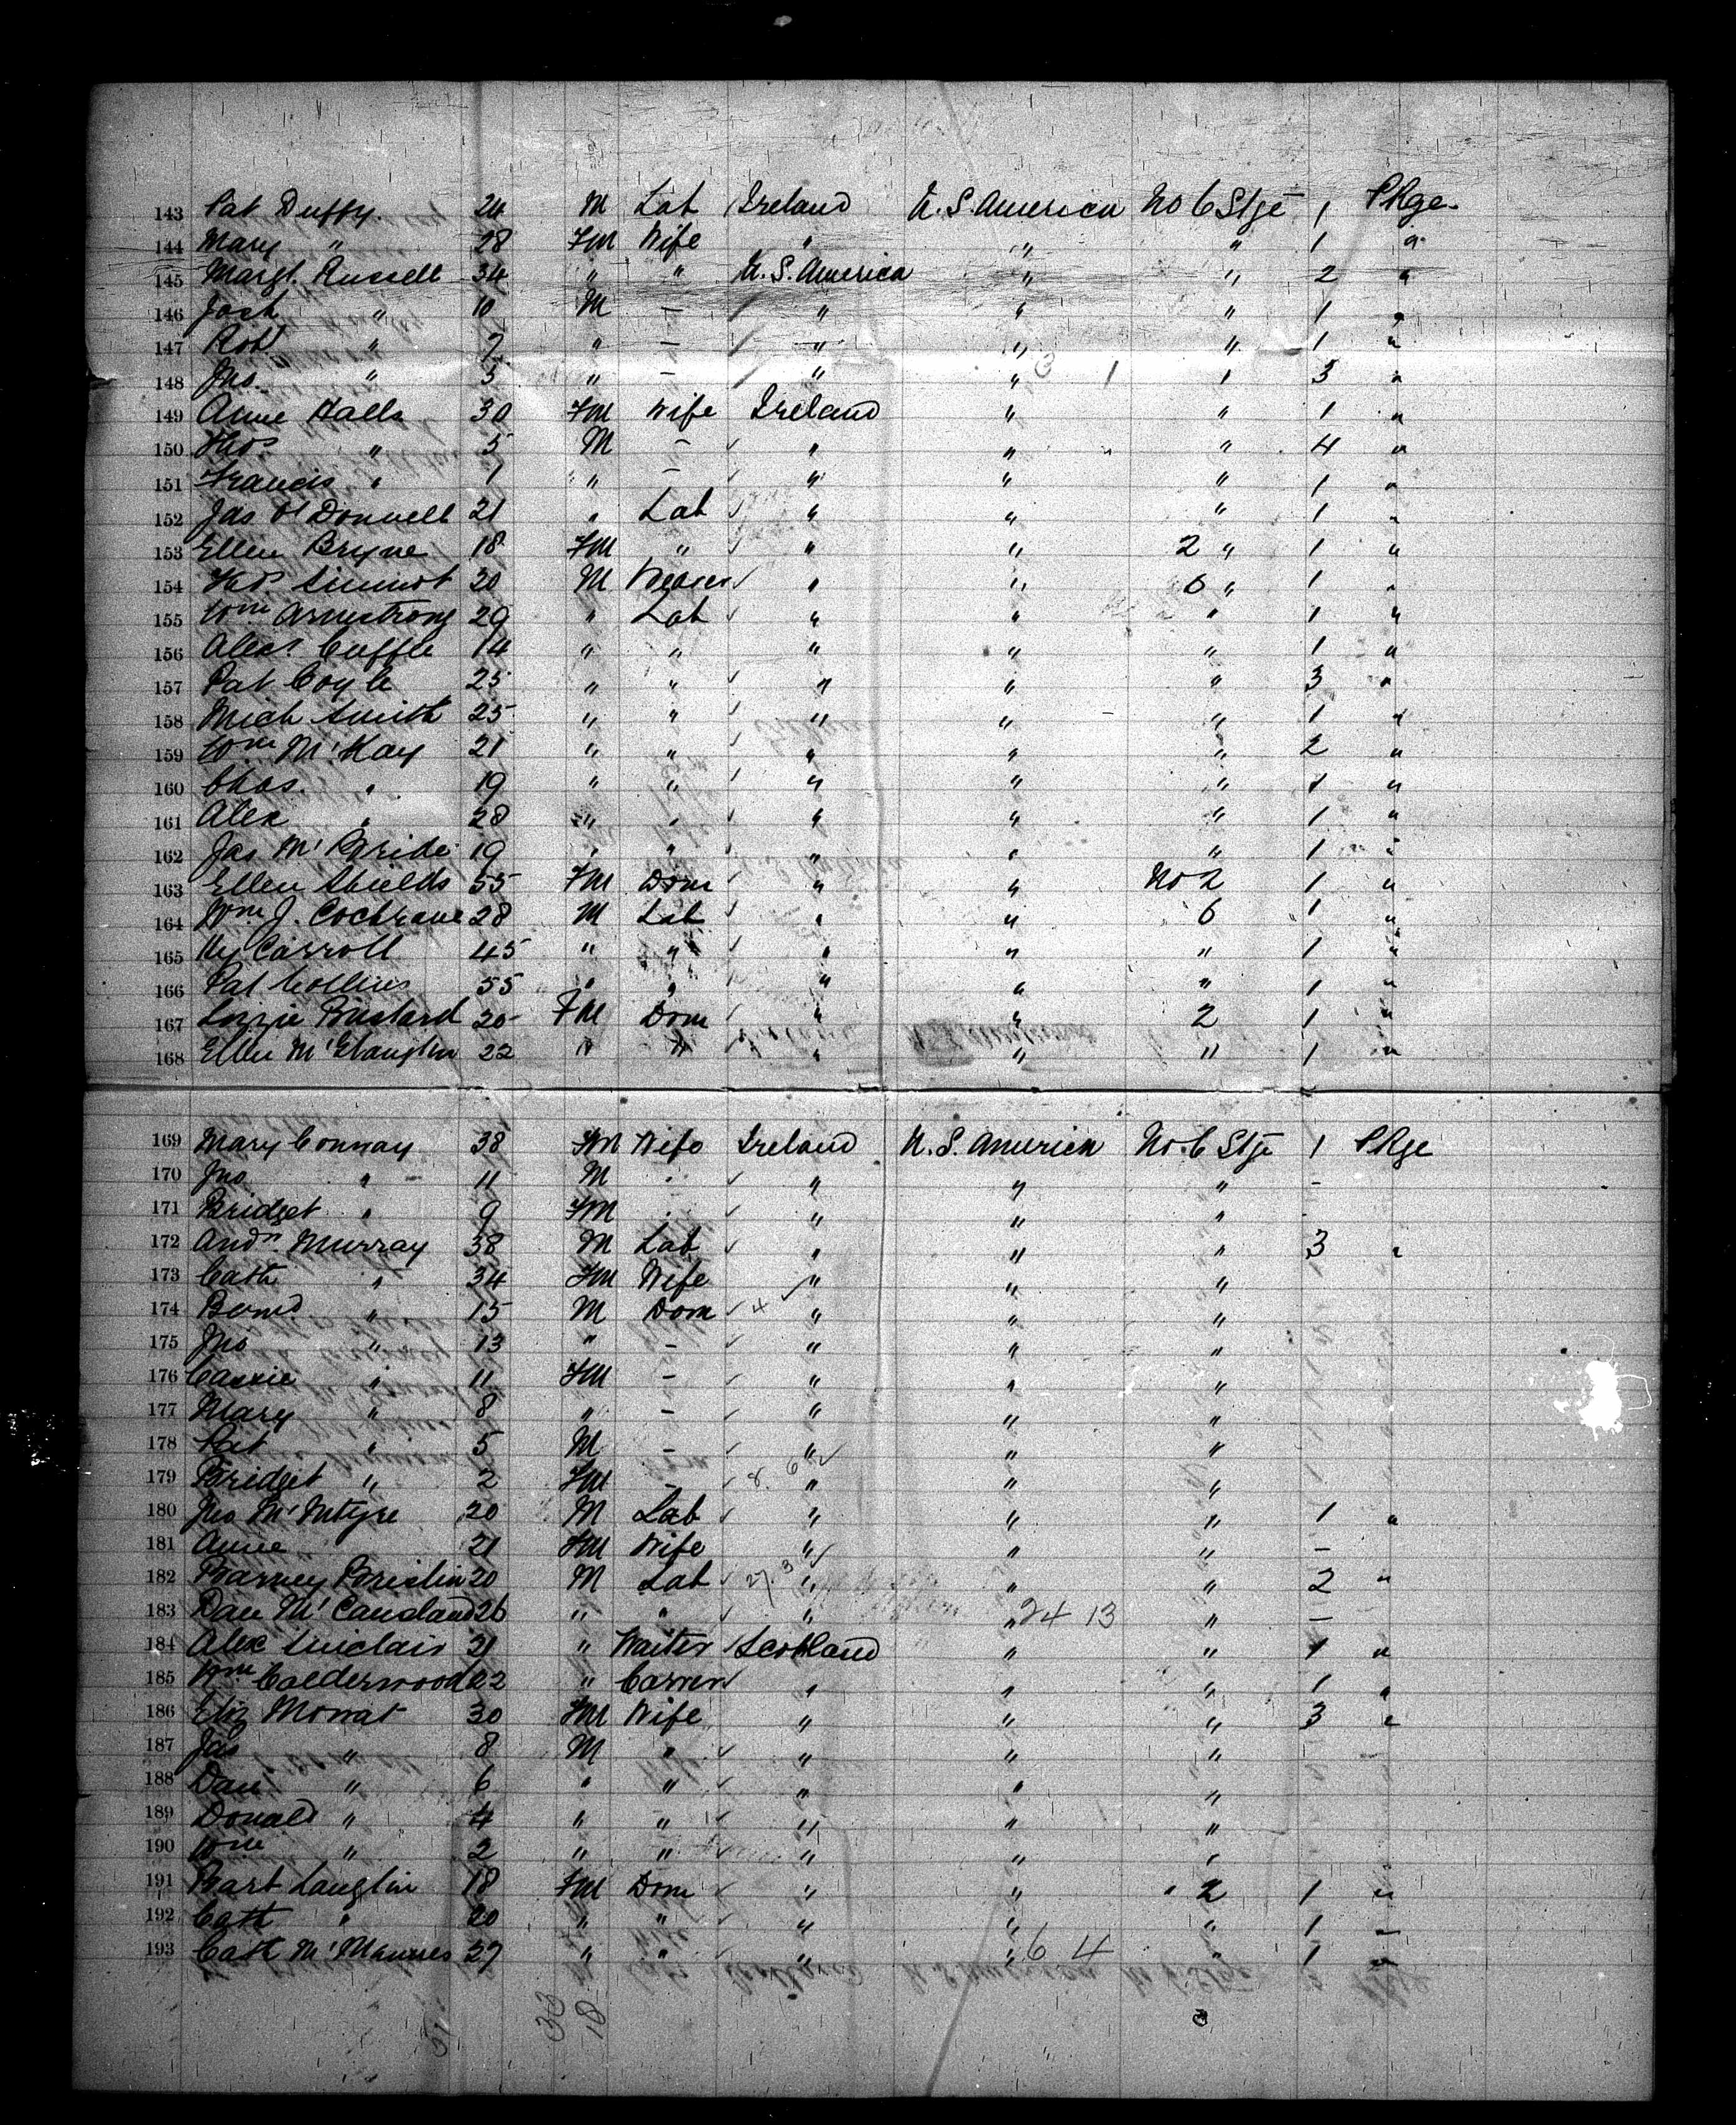 143 Pat Duffy. 24 M Lab Ireland U.S. America No 6 Stge 1 Pkge.
144 Mary " 28 FM Wife " " " 1 "
145 Margt. Russell 34 " " U.S. America " " 2 "
146 Josh " 10 M - " " " 1 "
147 Robt " 7 " - " " " 1 "
148 Jno. " 5 " - " " 1 3 "
149 Anne Halls 30 FM Wife Ireland " " 1 "
150 Thos " 5 M - " " " 4 "
151 Francis " 1 " - " " " 1 "
152 Jas O'Donnell 21 " Lab " " " 1 "
153 Ellen Bryne 18 FM " " " 2 " 1 "
154 Sinnot 20 M Weaver " " 6 " 1 "
155 Wm Armstrong 29 " Lab " " " 1 "
156 Alexr. Cuffle 14 " " " " " 1 "
157 Pat Coyle 25 " " " " " 3 "
158 Mich Smith 25 " " " " " 1 "
159 Wm McKay 21 " " " " " 2 "
160 Chas. " 19 " " " " " 1 "
161 Alex " 28 " " " " " 1 "
162 Jas McBride 19 " " " " " 1 "
163 Ellen Shields 55 FM Dom " " No 2 1 "
164 Wm J. Cochrane 28 M Lab " " 6 1 "
165 Hy Carroll 45 " " " " " 1 "
166 Pat Collins 55 " " " " " 1 "
167 Lizzie Bustard 20 FM Dom " " 2 1 "
168 Ellen 22 " " " " " 1 "
169 Mary Conway 38 FM Wife Ireland U.S. America No. 6 Stge 1 Pkge
170 Jno. " 11 M " " " -
171 Bridget " 9 FM " " "
172 Andw. Murray 38 M Lab " " " 3 "
173 Cath " 34 FM Wife " " "
174 Bernd " 15 M Dom 4 " " "
175 Jno " 13 " - " " "
176 Cassie " 11 FM - " " "
177 Mary " 8 " - " " "
178 Pat " 5 M - " " "
179 Bridget " 2 FM - 8. 6 " " "
180 Jno McIntyre 20 M Lab " " " 1 "
181 Anne " 21 FM Wife " " " -
182 Barney Brislin 20 M Lab 27.3 " " " 2 "
183 Dan McCausland 26 " " " " 24 13 " -
184 Alex Sinclair 21 " Waiter Scotland " " 1 "
185 Wm Calderwood 22 " Carver " " " 1 "
186 Eliz Mowat 30 FM Wife " " " 3 "
187 Jas " 8 M " " " "
188 Dan " 6 " " " " "
189 Donald " 4 " " " " "
190 Wm " 2 " " " " "
191 Bart Lauglin 18 FM Dom " " " 2 1 "
192 Cath " 20 " " " " " 1 "
193 Cath McManus 27 " " " " 6 4 " 1 "
33
18